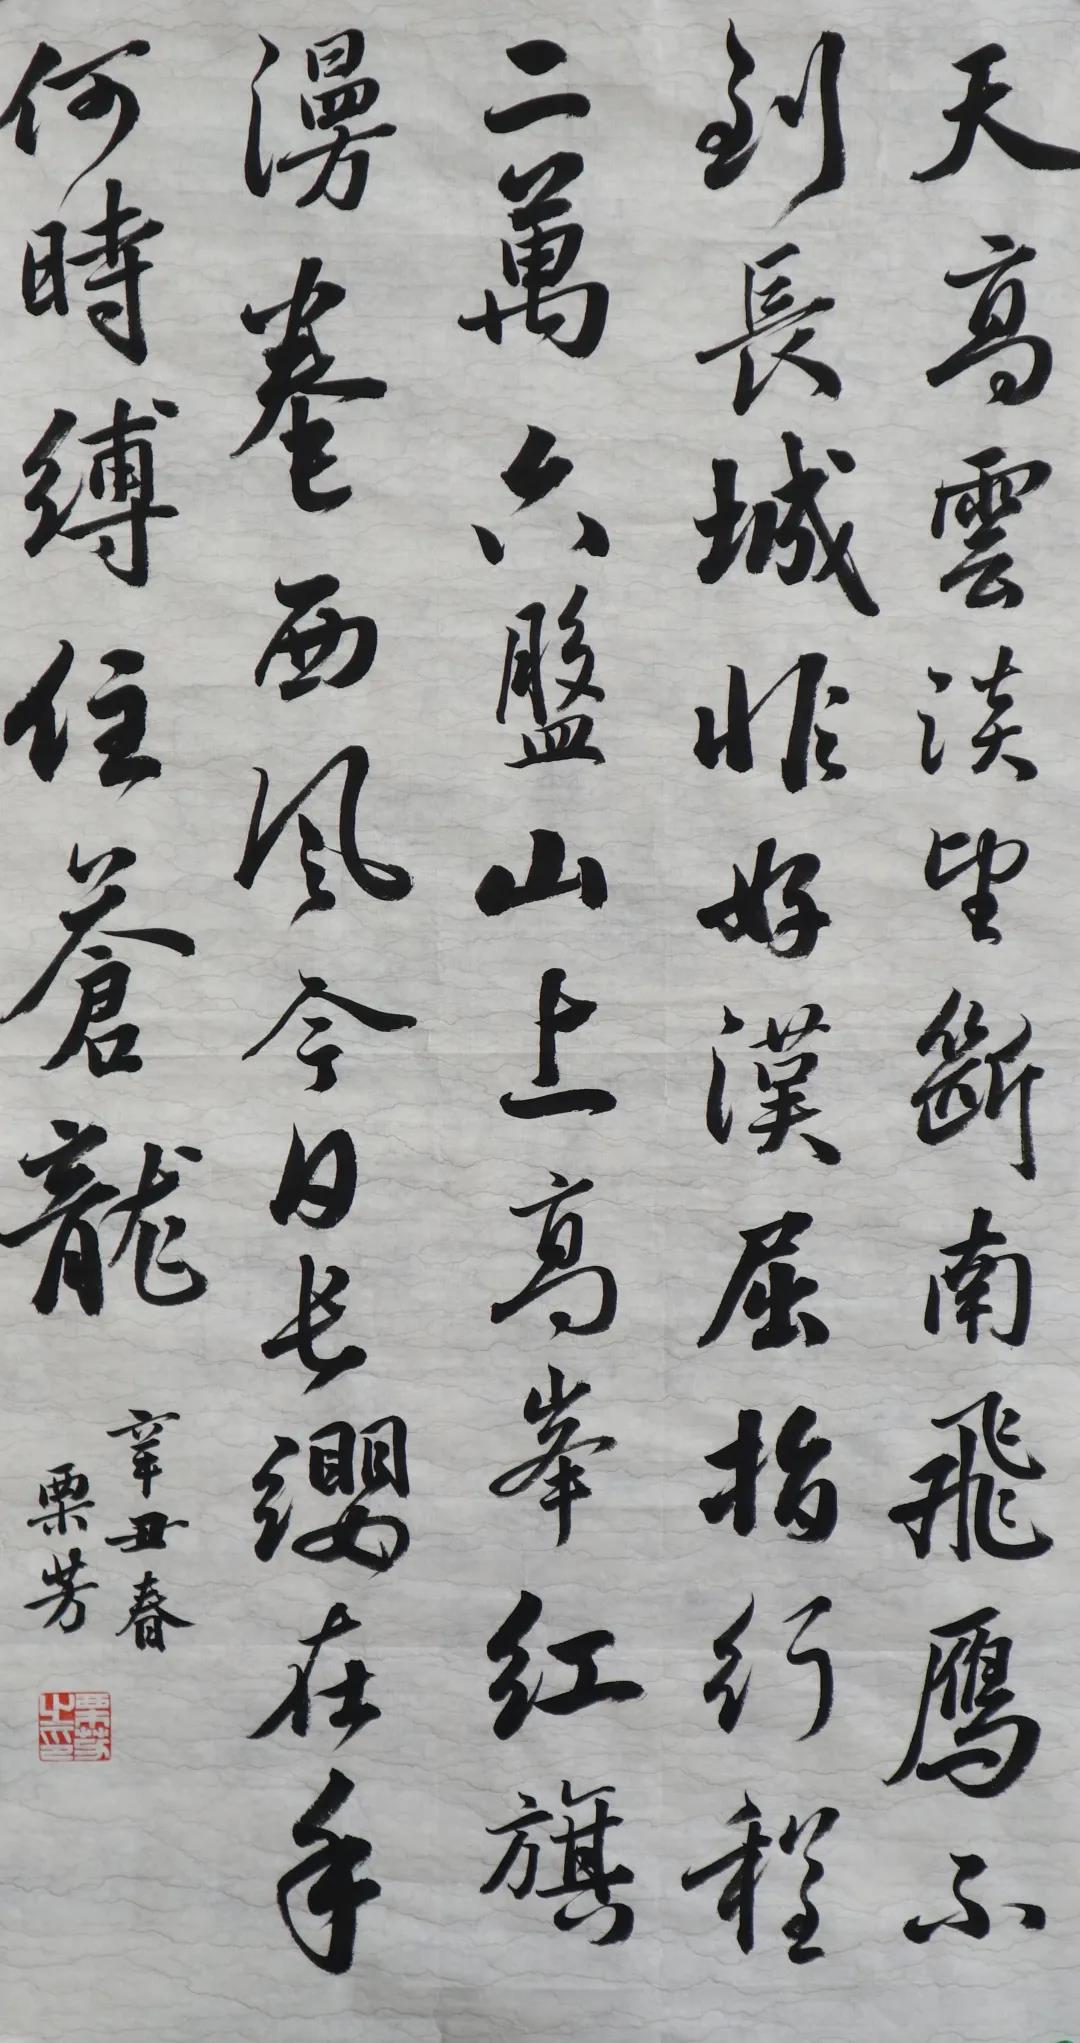 天高雲淡望斷南飛鴈不
到長城非好漢屈指行程
二萬六盤山上高峯红旗
漫卷西风今日长纓在手
何時縛住蒼龍
辛丑春
栗芳
栗芳之印